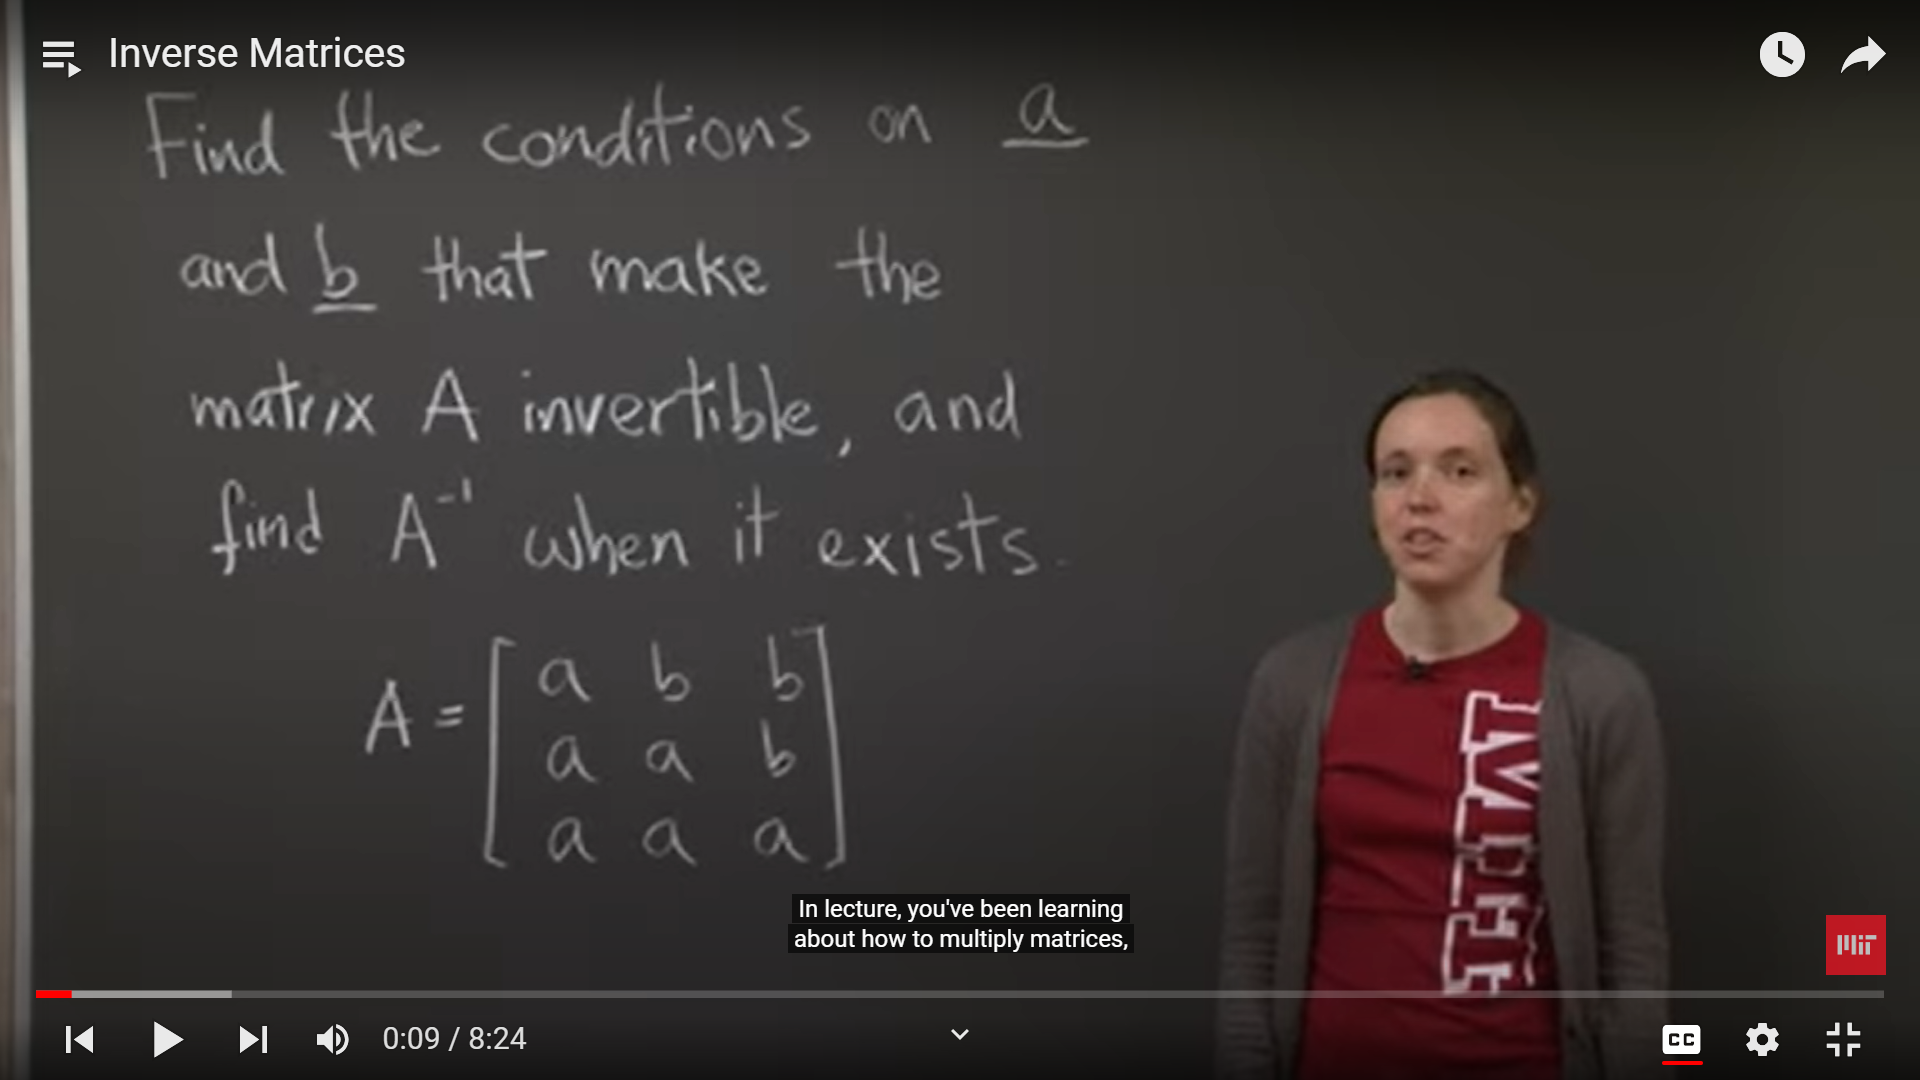 Inverse Matrices
Find the conditions on a
and b that make the
matrix A invertible, and
find A⁻¹ when it exists.
A = [ a b b
a a b
a a a ]
In lecture, you've been learning
about how to multiply matrices,
MIT
0:09 / 8:24
CC